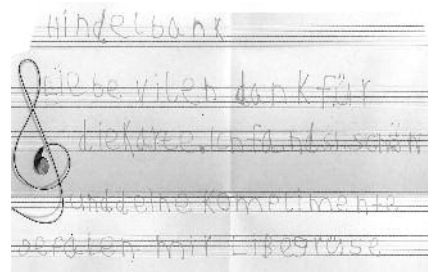 Hindelbank
Liebe vilen dank für
die Karte. Ich fand si schön
und deine Komplimente
gefallen mir Libegrüse